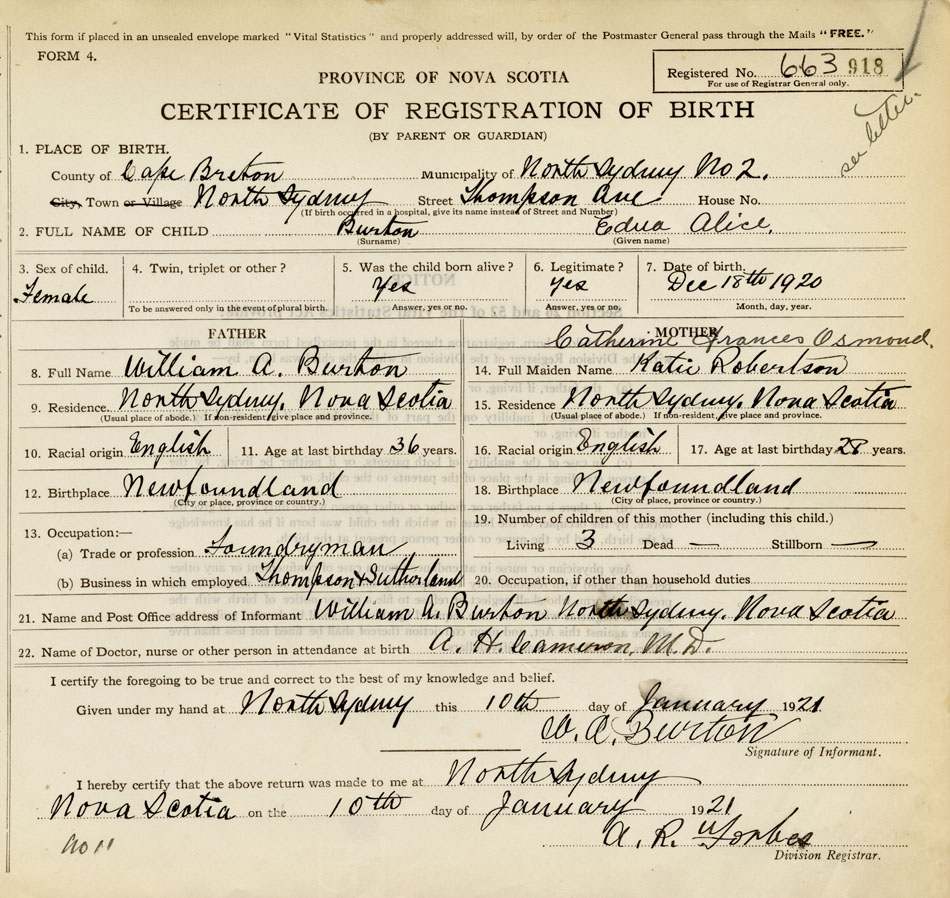 This form if placed in an unsealed envelope marked "Vital Statistics" and properly addressed will, by order of the Postmaster General pass through the Mails "FREE."
FORM 4.
Registered No. 663 918
For use of Registrar General only.
see letter.
PROVINCE OF NOVA SCOTIA
CERTIFICATE OF REGISTRATION OF BIRTH
(BY PARENT OR GUARDIAN)
1. PLACE OF BIRTH.
County of Cape Breton Municipality of North Sydney No 2.
City, Town or Village North Sydney Street Thompson Ave House No.
(If birth occurred in a hospital, give its name instead of Street and Number)
2. FULL NAME OF CHILD Burton Edna Alice,
(Surname) (Given name)
3. Sex of child. 4. Twin, triplet or other? 5. Was the child born alive? 6. Legitimate? 7. Date of birth.
Female Yes Yes Dec 18th 1920
To be answered only in the event of plural birth. Answer, yes or no. Answer, yes or no. Month, day, year.
FATHER MOTHER
Catherine Frances Osmond.
8. Full Name William A. Burton 14. Full Maiden Name Katie Robertson
9. Residence. North Sydney, Nova Scotia 15. Residence North Sydney, Nova Scotia
(Usual place of abode.) If non-resident, give place and province. (Usual place of abode.) If non-resident, give place and province.
10. Racial origin English 11. Age at last birthday 36 years. 16. Racial origin English 17. Age at last birthday 28 years.
12. Birthplace Newfoundland 18. Birthplace Newfoundland
(City or place, province or country.) (City or place, province or country.)
13. Occupation:— 19. Number of children of this mother (including this child.)
(a) Trade or profession Foundryman Living 3 Dead — Stillborn —
(b) Business in which employed Thompson & Sutherland 20. Occupation, if other than household duties
21. Name and Post Office address of Informant William A. Burton North Sydney, Nova Scotia
22. Name of Doctor, nurse or other person in attendance at birth A. H. Cameron, M.D.
I certify the foregoing to be true and correct to the best of my knowledge and belief.
Given under my hand at North Sydney this 10th day of January 1921
W. A. Burton
Signature of Informant.
I hereby certify that the above return was made to me at North Sydney
Nova Scotia on the 10th day of January 1921
A. R. Forbes
Division Registrar.